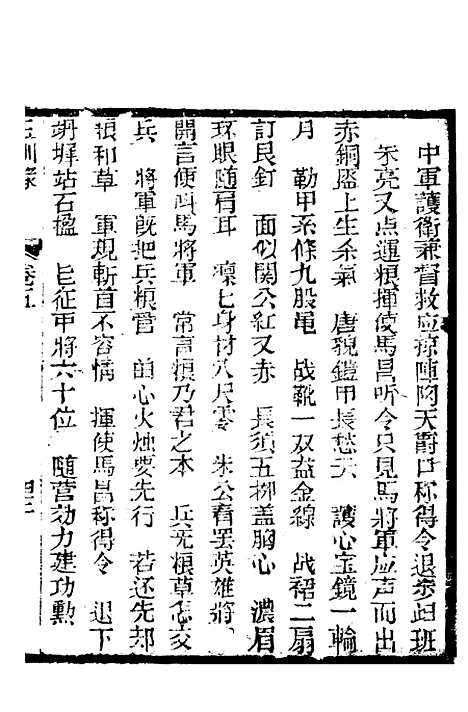 中軍護衛兼督救应掠陣陶天爵口称得令退杀班
朱亮又点運粮揮使馬昌听令只見馬將軍应声而出
赤銅盔上生杀氣　唐貌鎧甲長愁云　護心宝鏡一輪
月　勒甲系條九股黾　战靴一双益金線　战裙二扇
訂艮釘　面似関公紅又赤　長須五柳盖胸心　濃眉
环眼随肩耳　凜七身材八尺零　朱公看罢英雄將
開言便叫馬將軍　常言粮乃君之本　兵无粮草怎交
兵　將軍旣把兵粮管　的心火烛要先行　若还先却
粮和草　軍現斬首不容情　揮使馬昌称得令　退下
坍墀站石楹　旨征甲將六十位　随营効力建功勲
訓　卷五　四三